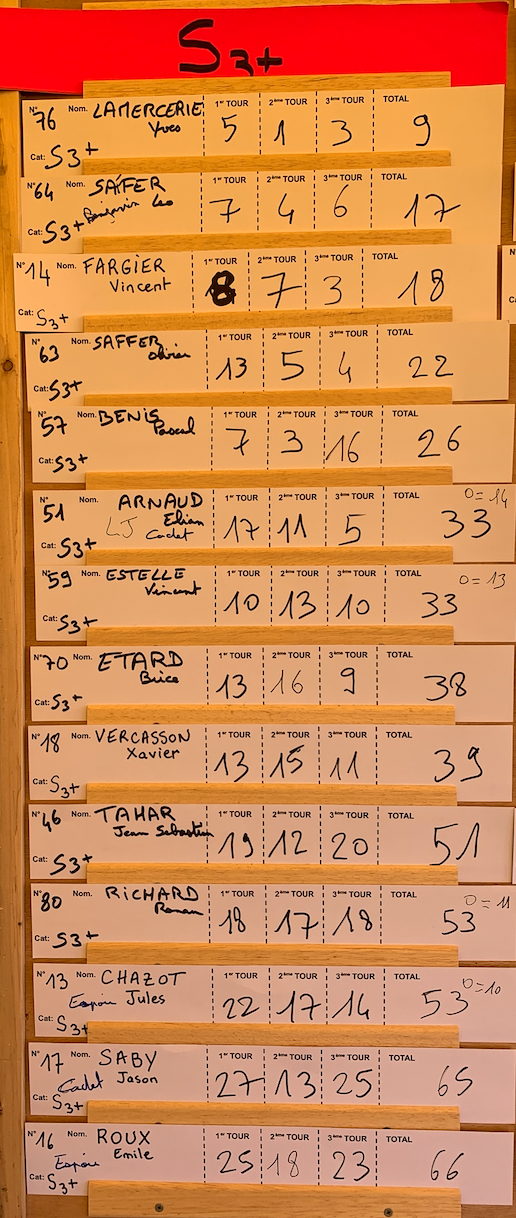 S3+
N° 76 Nom. LAMERCERIE 1er TOUR 2ème TOUR 3ème TOUR TOTAL
Yves 5 1 3 9
Cat: S3+
N° 64 Nom. SAFFER 1er TOUR 2ème TOUR 3ème TOUR TOTAL
Benjamin Leo 7 4 6 17
Cat: S3+
N° 14 Nom. FARGIER 1er TOUR 2ème TOUR 3ème TOUR TOTAL
Vincent 8 7 3 18
Cat: S3+
N° 63 Nom. SAFFER 1er TOUR 2ème TOUR 3ème TOUR TOTAL
Olivier 13 5 4 22
Cat: S3+
N° 57 Nom. BENIS 1er TOUR 2ème TOUR 3ème TOUR TOTAL
Pascal 7 3 16 26
Cat: S3+
N° 51 Nom. ARNAUD 1er TOUR 2ème TOUR 3ème TOUR TOTAL 0=14
LJ Elian 17 11 5 33
Cadet
Cat: S3+
N° 59 Nom. ESTELLE 1er TOUR 2ème TOUR 3ème TOUR TOTAL 0=13
Vincent 10 13 10 33
Cat: S3+
N° 70 Nom. ETARD 1er TOUR 2ème TOUR 3ème TOUR TOTAL
Brice 13 16 9 38
Cat: S3+
N° 18 Nom. VERCASSON 1er TOUR 2ème TOUR 3ème TOUR TOTAL
Xavier 13 15 11 39
Cat: S3+
N° 46 Nom. TAHAR 1er TOUR 2ème TOUR 3ème TOUR TOTAL
Jean Sebastien 19 12 20 51
Cat: S3+
N° 80 Nom. RICHARD 1er TOUR 2ème TOUR 3ème TOUR TOTAL 0=11
Ronan 18 17 18 53
Cat: S3+
N° 13 Nom. CHAZOT 1er TOUR 2ème TOUR 3ème TOUR TOTAL 0=10
Espoir Jules 22 17 14 53
Cat: S3+
N° 17 Nom. SABY 1er TOUR 2ème TOUR 3ème TOUR TOTAL
Cadet Jason 27 13 25 65
Cat: S3+
N° 16 Nom. ROUX 1er TOUR 2ème TOUR 3ème TOUR TOTAL
Espoir Emile 25 18 23 66
Cat: S3+